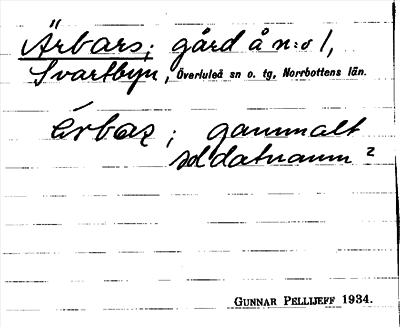 Ärbars; gård å n:o 1,
Svartbyn, Överluleå sn o. tg, Norrbottens län.
ärbaʀ; gammalt
soldatnamn?
GUNNAR PELLIJEFF 1934.